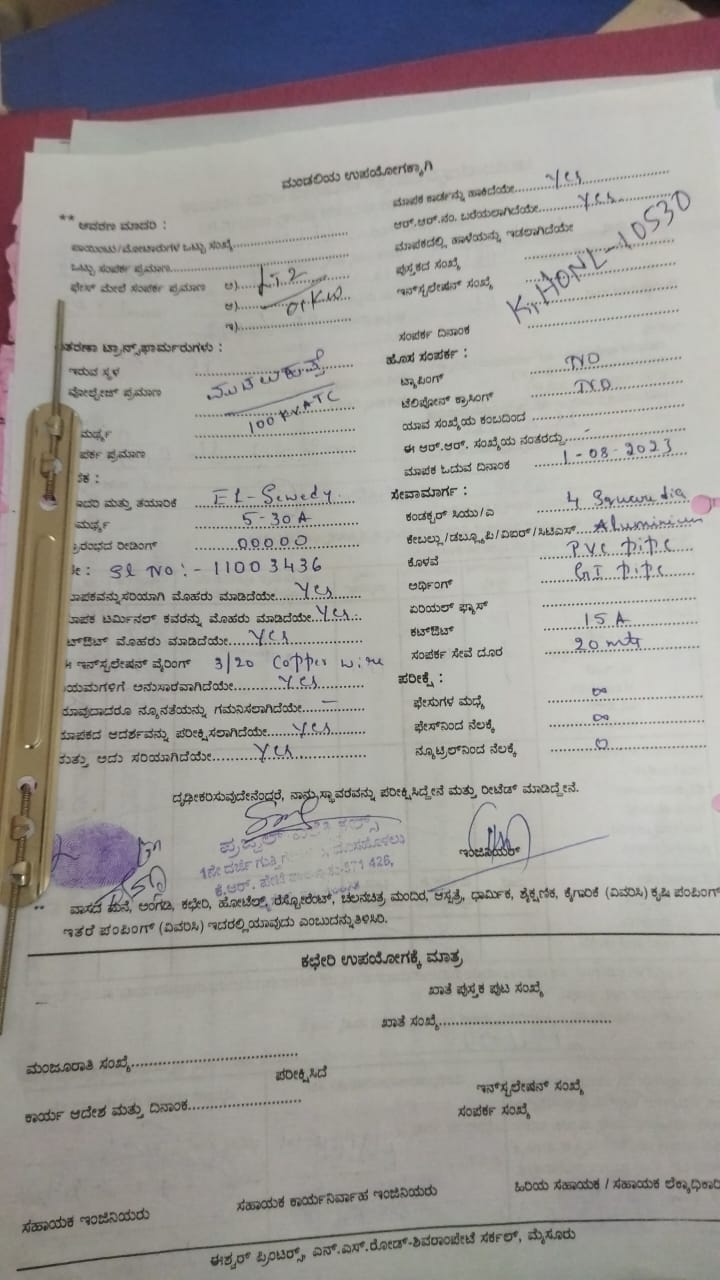 ಮಂಡಲಿಯ ಉಪಯೋಗಕ್ಕಾಗಿ
** ಆವರಣ ಮಾದರಿ :
ಪಾಯಿಂಟು/ಮೋಟಾರುಗಳ ಒಟ್ಟು ಸಂಖ್ಯೆ
ಒಟ್ಟು ಸಂಪರ್ಕ ಪ್ರಮಾಣ
ಫೇಸ್ ಮೇಲೆ ಸಂಪರ್ಕ ಪ್ರಮಾಣ ಅ) LT.2
ಆ)
ಇ)
ತರಣಾ ಟ್ರಾನ್ಸ್‌ಫಾರ್ಮರುಗಳು :
ಇರುವ ಸ್ಥಳ
ವೋಲ್ಟೇಜ್ ಪ್ರಮಾಣ
100 KVA TC
ಮರ್ಥ್ಯ
ಪರ್ಕ ಪ್ರಮಾಣ
ಕ :
ಾದರಿ ಮತ್ತು ತಯಾರಿಕೆ El-Sewedy.
ಮರ್ಥ್ಯ 5-30A
್ರಾರಂಭದ ರೀಡಿಂಗ್ 00000
Sl No:- 11003436
ಾಪಕವನ್ನು ಸರಿಯಾಗಿ ಮೊಹರು ಮಾಡಿದೆಯೇ Yes
ಾಪಕ ಟರ್ಮಿನಲ್ ಕವರನ್ನು ಮೊಹರು ಮಾಡಿದೆಯೇ Yes
ಕಟ್‌ಔಟ್ ಮೊಹರು ಮಾಡಿದೆಯೇ Yes
ಈ ಇನ್‌ಸ್ಟಲೇಷನ್ ವೈರಿಂಗ್ 3/20 Copper wire
ಯಮಗಳಿಗೆ ಅನುಸಾರವಾಗಿದೆಯೇ Yes
ಾವುದಾದರೂ ನ್ಯೂನತೆಯನ್ನು ಗಮನಿಸಲಾಗಿದೆಯೇ —
ಾಪಕದ ಆದರ್ಶವನ್ನು ಪರೀಕ್ಷಿಸಲಾಗಿದೆಯೇ Yes
ಮತ್ತು ಅದು ಸರಿಯಾಗಿದೆಯೇ Yes
ಮಾಪಕ ಕಾರ್ಡನ್ನು ಹಾಕಿದೆಯೇ Yes
ಆರ್.ಆರ್.ನಂ. ಬರೆಯಲಾಗಿದೆಯೇ Yes
ಮಾಪಕದಲ್ಲಿ ಹಾಳೆಯನ್ನು ಇಡಲಾಗಿದೆಯೇ
ಪುಸ್ತಕದ ಸಂಖ್ಯೆ
ಇನ್‌ಸ್ಟಲೇಷನ್ ಸಂಖ್ಯೆ KiHONL-10530
ಸಂಪರ್ಕ ದಿನಾಂಕ
ಹೊಸ ಸಂಪರ್ಕ :
ಟ್ಯಾಪಿಂಗ್ NO
ಟೆಲಿಫೋನ್ ಕ್ರಾಸಿಂಗ್ NO
ಯಾವ ಸಂಖ್ಯೆಯ ಕಂಬದಿಂದ
ಈ ಆರ್.ಆರ್. ಸಂಖ್ಯೆಯ ನಂತರದ್ದು
ಮಾಪಕ ಓದುವ ದಿನಾಂಕ 1-08-2023
ಸೇವಾಮಾರ್ಗ :
ಕಂಡಕ್ಟರ್ ಸಿಯು/ಎ 4 Square dia
ಕೇಬಲ್ಲು/ಡಬ್ಲ್ಯೂಪಿ/ವಿಐರ್/ಸಿಟಿಎಸ್ Aluminium
ಕೊಳವೆ PVC pipe
ಅರ್ಥಿಂಗ್ GI pipe
ಏರಿಯಲ್ ಫ್ಯೂಸ್
ಕಟ್‌ಔಟ್ 15A
ಸಂಪರ್ಕ ಸೇವೆ ದೂರ 20 mtr
ಪರೀಕ್ಷೆ :
ಫೇಸುಗಳ ಮಧ್ಯೆ ∞
ಫೇಸ್‌ನಿಂದ ನೆಲಕ್ಕೆ ∞
ನ್ಯೂಟ್ರಲ್‌ನಿಂದ ನೆಲಕ್ಕೆ 0
ದೃಢೀಕರಿಸುವುದೇನೆಂದರೆ, ನಾನು ಸ್ಥಾವರವನ್ನು ಪರೀಕ್ಷಿಸಿದ್ದೇನೆ ಮತ್ತು ರೀಟೆಡ್ ಮಾಡಿದ್ದೇನೆ.
1ನೇ ದರ್ಜೆ ಗುತ್ತಿಗೆ
ಕೆ.ಆರ್. ಪೇಟೆ 571 426,
ಇಂಜಿನಿಯರ್
** ವಾಸದ ಮನೆ, ಅಂಗಡಿ, ಕಛೇರಿ, ಹೋಟೆಲ್, ರೆಸ್ಟೋರೆಂಟ್, ಚಲನಚಿತ್ರ ಮಂದಿರ, ಆಸ್ಪತ್ರೆ, ಧಾರ್ಮಿಕ, ಶೈಕ್ಷಣಿಕ, ಕೈಗಾರಿಕೆ (ವಿವರಿಸಿ) ಕೃಷಿ ಪಂಪಿಂಗ್
ಇತರೆ ಪಂಪಿಂಗ್ (ವಿವರಿಸಿ) ಇದರಲ್ಲಿ ಯಾವುದು ಎಂಬುದನ್ನು ತಿಳಿಸಿರಿ.
ಕಛೇರಿ ಉಪಯೋಗಕ್ಕೆ ಮಾತ್ರ
ಖಾತೆ ಪುಸ್ತಕ ಪುಟ ಸಂಖ್ಯೆ
ಖಾತೆ ಸಂಖ್ಯೆ
ಮಂಜೂರಾತಿ ಸಂಖ್ಯೆ
ಪರೀಕ್ಷಿಸಿದೆ
ಇನ್‌ಸ್ಟಲೇಷನ್ ಸಂಖ್ಯೆ
ಕಾರ್ಯ ಆದೇಶ ಮತ್ತು ದಿನಾಂಕ
ಸಂಪರ್ಕ ಸಂಖ್ಯೆ
ಸಹಾಯಕ ಇಂಜಿನಿಯರು ಸಹಾಯಕ ಕಾರ್ಯನಿರ್ವಾಹ ಇಂಜಿನಿಯರು ಹಿರಿಯ ಸಹಾಯಕ / ಸಹಾಯಕ ಲೆಕ್ಕಾಧಿಕಾರಿ
ಈಶ್ವರ್ ಪ್ರಿಂಟರ್ಸ್, ಎನ್.ಎಸ್.ರೋಡ್-ಶಿವರಾಂಪೇಟೆ ಸರ್ಕಲ್, ಮೈಸೂರು